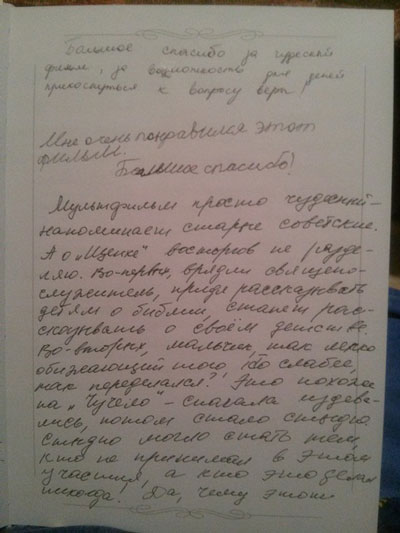 Большое спасибо за чудесный
фильм, за возможность для детей
прикоснуться к вопросу веры!
Мне очень понравился этот
фильм.
Большое спасибо!
Мультфильм просто чудесный –
напоминает старые советские.
А о „Щенке" восторгов не разде-
ляю. Во-первых, врядли священо-
служитель, придя рассказывать
детям о библии, станет рас-
сказывать о своём детстве.
Во-вторых, мальчик, так легко
обижающий того, кто слабее,
как переделался? Это похоже
на „Чучело" – сначала издева-
лись, потом стало стыдно.
Стыдно могло стать тем,
кто не принимал в этом
участия, а кто это делал
никогда! Да, чему этот